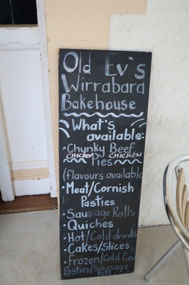 Old Ev's
Wirrabara
Bakehouse
What's
available:
• Chunky Beef
CHICKEN CHICKEN
Pies
(flavours available)
• Meat/Cornish
Pasties
• Sausage Rolls
• Quiches
• Hot/Cold drinks
• Cakes/Slices
• Frozen/Cold
Pasties/Sausage
Rolls